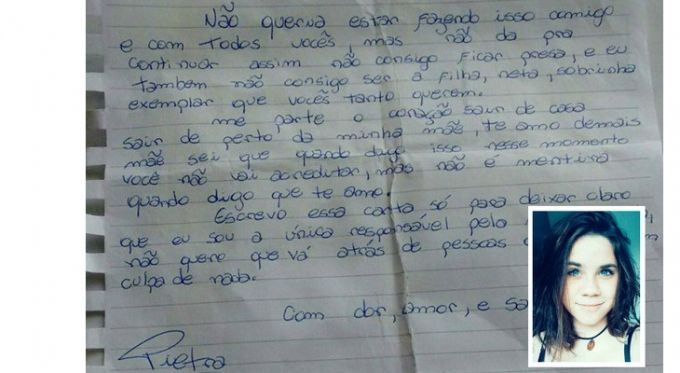 Não queria estar fazendo isso comigo
e com todos vocês, mas não da pra
continuar assim não consigo ficar presa, e eu
também não consigo ser a filha, neta, sobrinha
exemplar que vocês tanto querem.
me parte o coração sair de casa
sair de perto da minha mãe, te amo demais
mãe sei que quando digo isso nesse momento
você não vai acreditar, mas não é mentira
quando digo que te amo.
Escrevo essa carta só para deixar claro
que eu sou a única responsável pelo
não quero que vá atrás de pessoas
culpa de nada.
Com dor, amor, e
Pietra